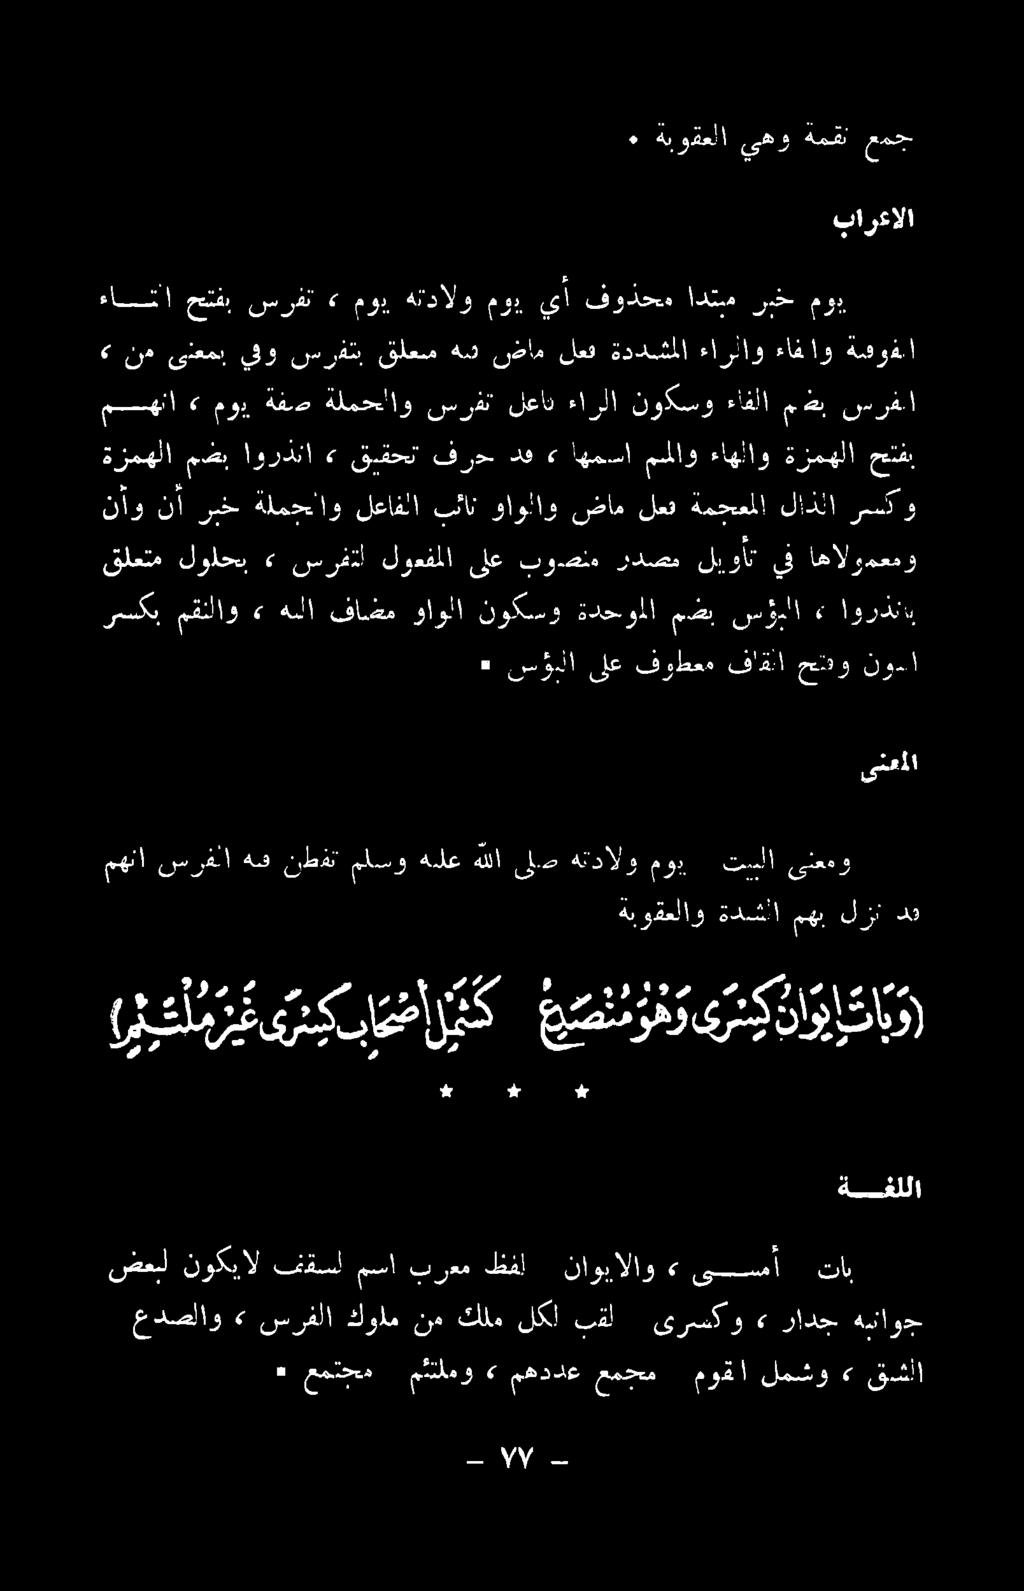 جمع نقمة وهي العقوبة .
الاعراب
يوم خبر مبتدا محذوف أي يوم ولادته يوم ، تفرس بفتح التـــاء
الفوقية والفاء والراء المشددة فعل ماض فيه متعلق بتفرس وفي بمعنى من ،
الفرس بضم الفاء وسكون الراء فاعل تفرس والجملة صفة يوم ، انهـــم
بفتح الهمزة والهاء والميم اسمها ، قد حرف تحقيق ، انذروا بضم الهمزة
وكسر الذال المعجمة فعل ماض والواو نائب الفاعل والجملة خبر أن وأن
ومعمولاها في تأويل مصدر منصوب على المفعول لتفرس ، بحلول متعلق
بانذروا ، البؤس بضم الموحدة وسكون الواو مضاف اليه ، والنقم بكسر
النون وفتح القاف معطوف على البؤس .
المعنى
ومعنى البيت يوم ولادته صلى الله عليه وسلم تفطن فيه الفرس انهم
قد نزل بهم الشدة والعقوبة
(وَبَاتَ إِيوَانُ كِسْرَى وَهُوَ مُنْصَدِعٌ كَشَمْلِ أَصْحَابِ كِسْرَى غَيْرَ مُلْتَئِمِ)
★ ★ ★
اللغـــة
بات أمســـى ، والايوان لفظ معرب اسم لسقف لايكون لبعض
جوانبه جدار ، وكسرى لقب لكل ملك من ملوك الفرس ، والصدع
الشق ، وشمل القوم مجمع عددهم ، وملتئم مجتمع .
– ٧٧ –